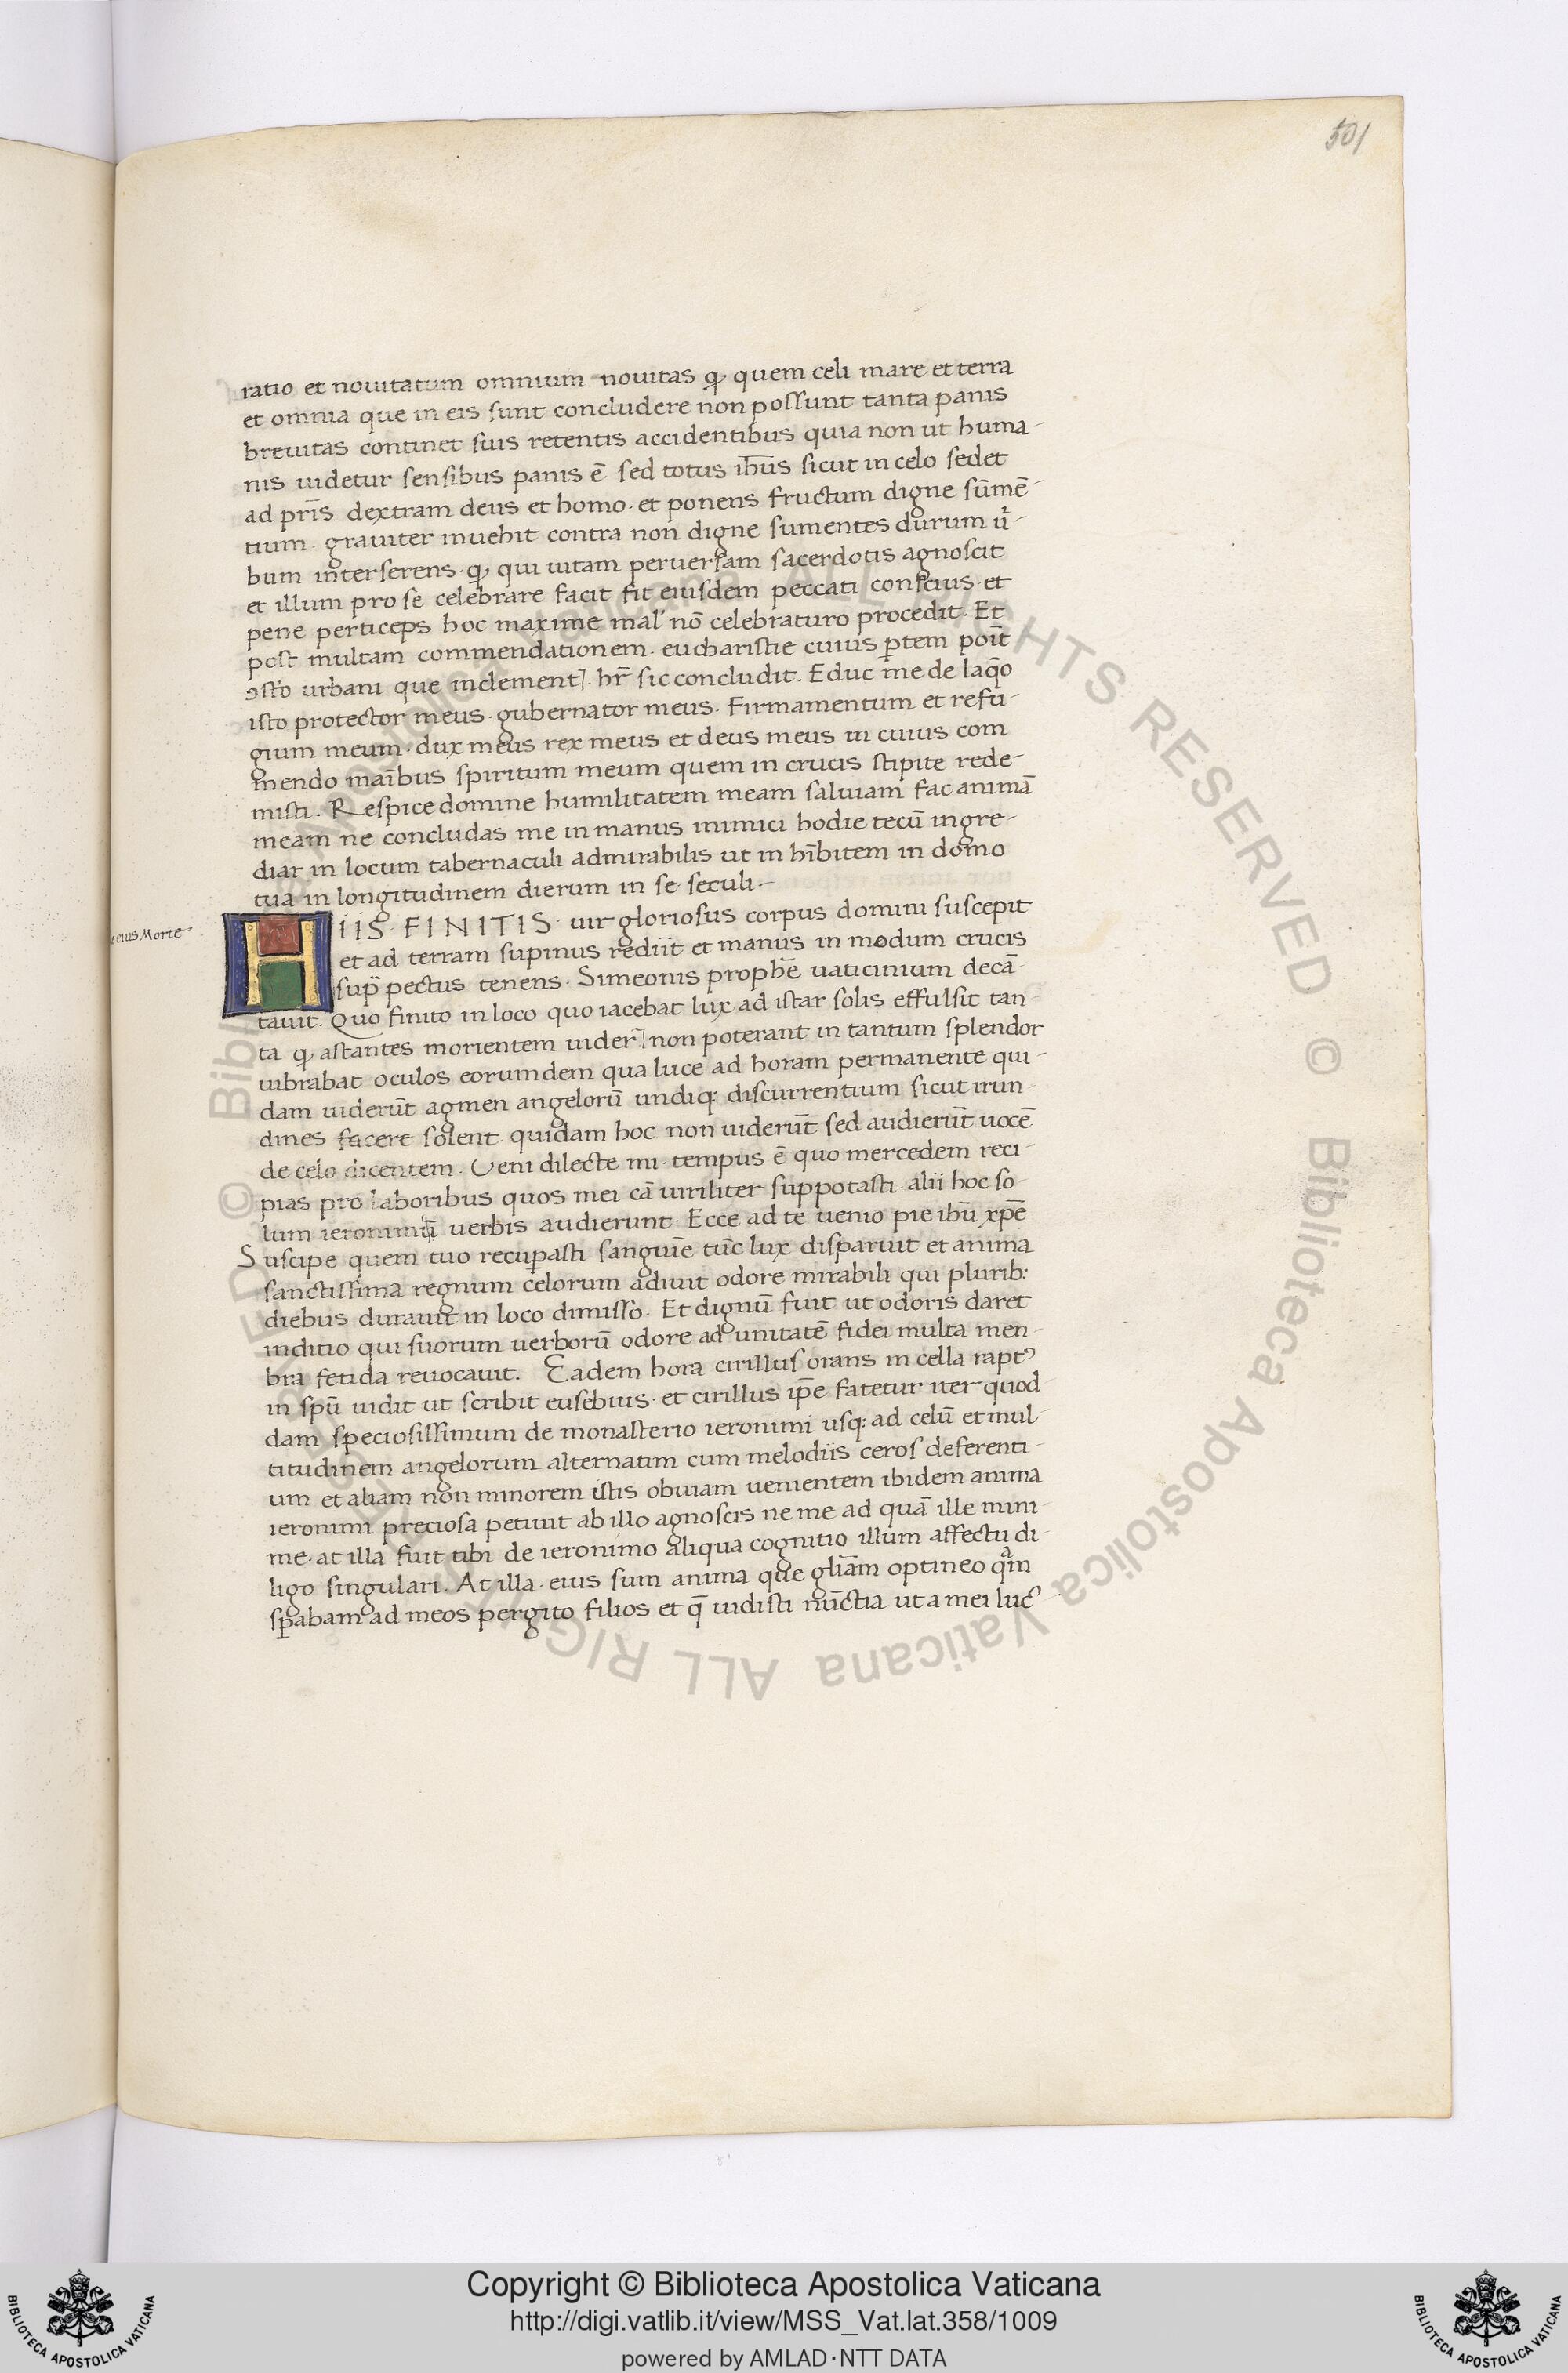 501
ratio et nouitatum omnium nouitas ꝙ quem celi mare et terra
et omnia que in eis sunt concludere non possunt tanta panis
breuitas continet suis retentis accidentibus quia non ut huma-
nis uidetur sensibus panis ē sed totus ihūs sicut in celo sedet
ad pr̄is dextram deus et homo. et ponens fructum digne sūmē-
tium. grauiter inuehit contra non digne sumentes durum u̇-
bum interserens. ꝙ qui uitam peruersam sacerdotis agnoscit
et illum pro se celebrare facit fit eiusdem peccati conscius. et
pene perticeps hoc maxime mal' nō celebraturo procedit. Et
post multam commendationem. eucharistie cuius ꝑtem poīt
ꝯsto urbani que inclement]. hr̄ sic concludit. Educ me de laq̄o
isto protector meus. gubernator meus. Firmamentum et refu-
gium meum. dux meus rex meus et deus meus in cuius com
mendo maībus spiritum meum quem in crucis stipite rede-
misti. Respice domine humilitatem meam saluam fac animā
meam ne concludas me in manus inimici hodie tecū ingre-
diar in locum tabernaculi admirabilis ut inhībitem in domo
tua in longitudinem dierum in se seculi.-
eius Morte-
HIIS FINITIS. uir gloriosus corpus domini suscepit
et ad terram supinus rediit et manus in modum crucis
sup̄ pectus tenens. Simeonis prophē uaticinium decā-
tauit. Quo finito in loco quo iacebat lux ad istar solis effulsit tan
ta ꝙ astantes morientem uider̄] non poterant in tantum splendor
uibrabat oculos eorumdem qua luce ad horam permanente qui-
dam uiderūt agmen angelorū undiq: discurrentium sicut irun-
dines facere solent. quidam hoc non uiderūt sed audierūt uocē
de celo dicentem. Ueni dilecte mi. tempus ē quo mercedem reci-
pias pro laboribus quos mei cā uiriliter suppotasti. alii hoc so-
lum uerbis audierunt. Ecce ad te uenio pie ihū xp̄e
Suscipe quem tuo recuꝑasti sanguīe tūc lux disparuit et anima
sanctissima regnum celorum adiuit odore mirabili qui plurib:
diebus durauit in loco dimisso. Et dignū fuit ut odoris daret
inditio qui suorum uerborū odore ad unitatē fidei multa men-
bra fetida reuocauit. Eadem hora cirillus orans in cella raptꝰ
in spū uidit ut scribit eusebius. et cirillus ip̄e fatetur iter quod
dam speciosissimum de monasterio ieronimi usq: ad celū et mul-
titudinem angelorum alternatim cum melodiis ceros deferenti-
um et aliam non minorem istis obuiam uenientem ibidem anima
ieronimi preciosa petiuit ab illo agnoscis ne me ad quā ille mini-
me. at illa fuit tibi de ieronimo aliqua cognitio illum affectu di-
ligo singulari. At illa. eius sum anima que gl̄iam optineo q̄m
sꝑabam ad meos pergito filios et q̄ uidisti nūctia ut a mei lucꝰ
Copyright © Biblioteca Apostolica Vaticana
http://digi.vatlib.it/view/MSS_Vat.lat.358/1009
powered by AMLAD·NTT DATA